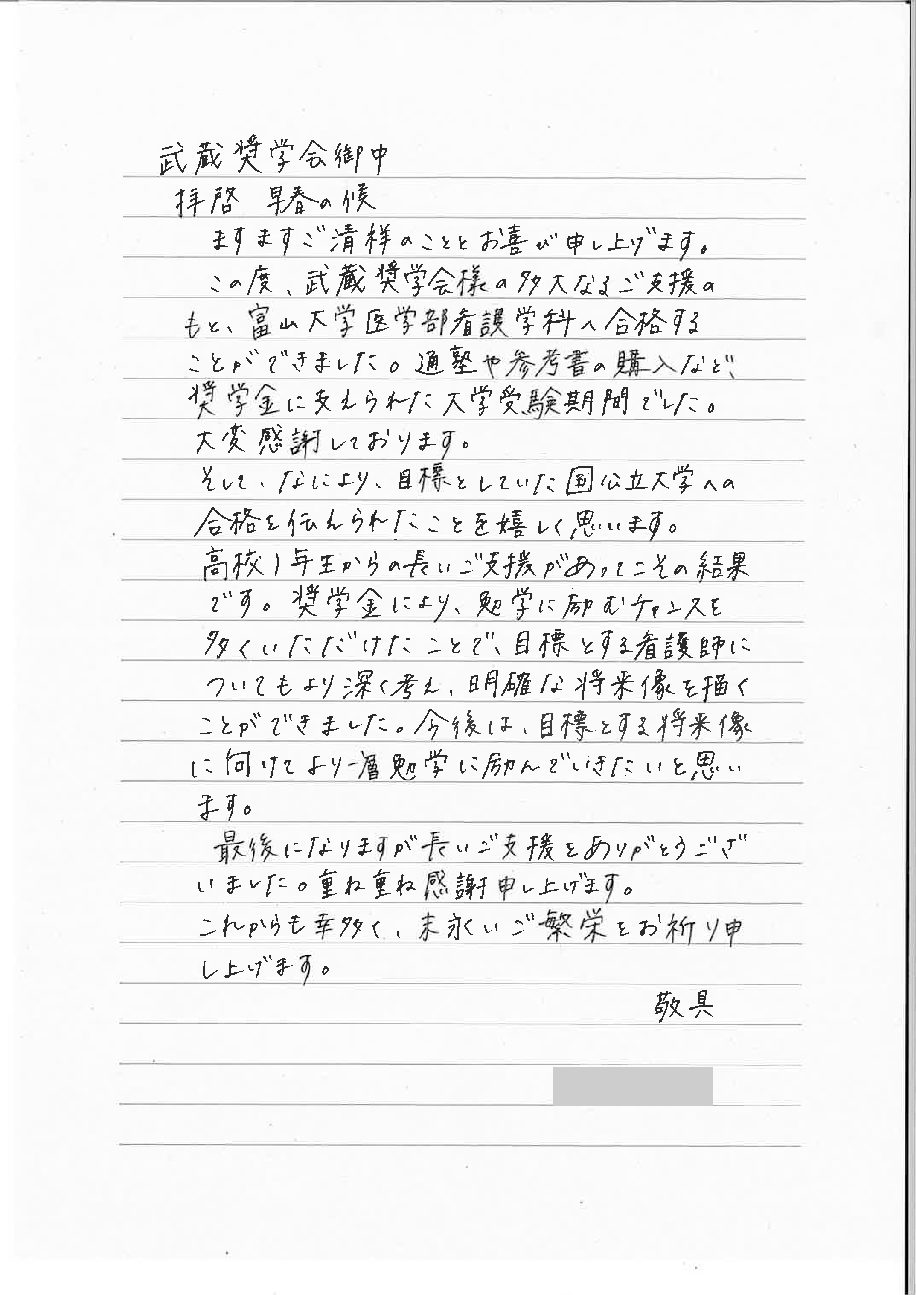 武蔵奨学会御中
拝啓 早春の候
ますますご清祥のこととお喜び申し上げます。
この度、武蔵奨学会様の多大なるご支援の
もと、富山大学医学部看護学科へ合格する
ことができました。通塾や参考書の購入など、
奨学金に支えられた大学受験期間でした。
大変感謝しております。
そして、なにより、目標としていた国公立大学への
合格を伝えられたことを嬉しく思います。
高校1年生からの長いご支援があってこその結果
です。奨学金により、勉学に励むチャンスを
多くいただけたことで、目標とする看護師に
ついてもより深く考え、明確な将来像を描く
ことができました。今後は、目標とする将来像
に向けてより一層勉学に励んでいきたいと思い
ます。
最後になりますが長いご支援をありがとうござ
いました。重ね重ね感謝申し上げます。
これからも幸多く、末永いご繁栄をお祈り申
し上げます。
敬具